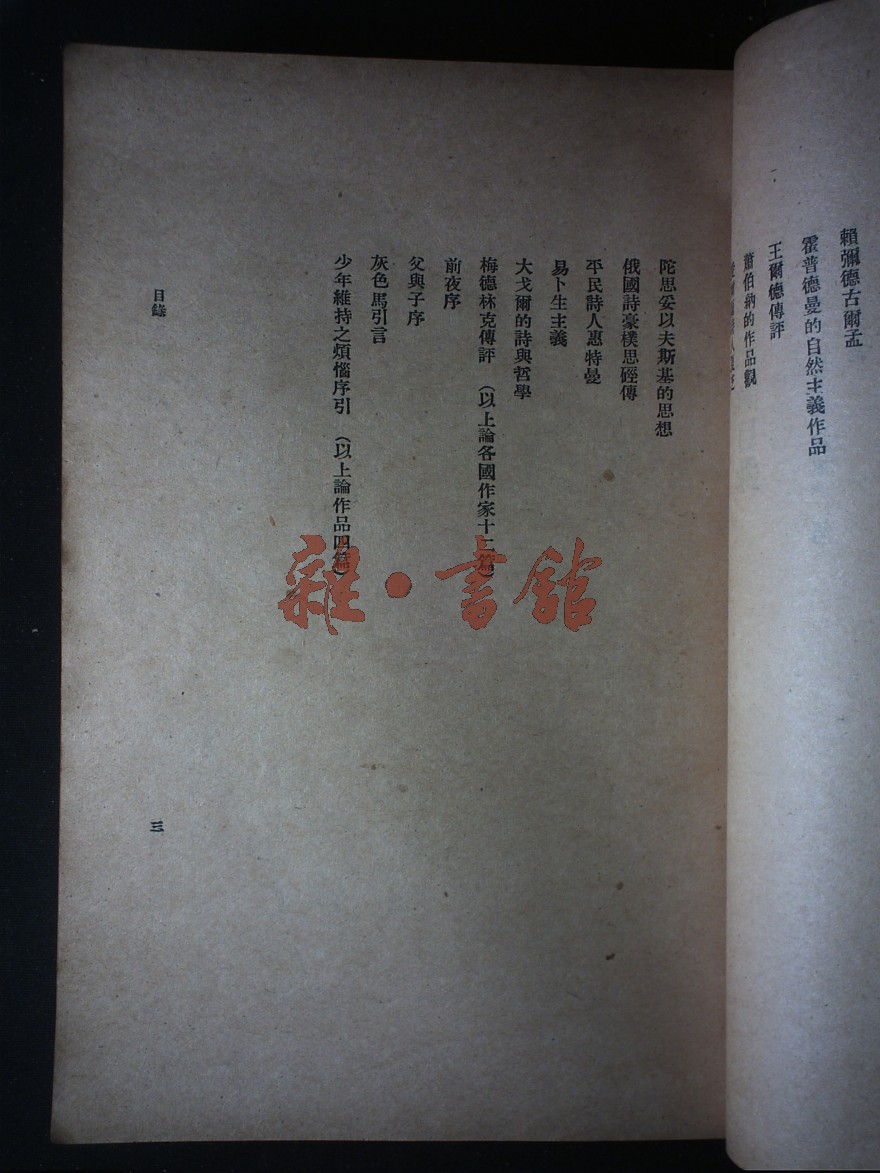 賴彌德古爾孟
霍普德曼的自然主義作品
王爾德傳評
蕭伯納的作品觀
陀思妥以夫斯基的思想
俄國詩豪樸思砡傳
平民詩人惠特曼
易卜生主義
大戈爾的詩與哲學
梅德林克傳評 (以上論各國作家十二篇)
前夜序
父與子序
灰色馬引言
少年維持之煩惱序引 (以上論作品四篇)
目錄
三
雜·書館